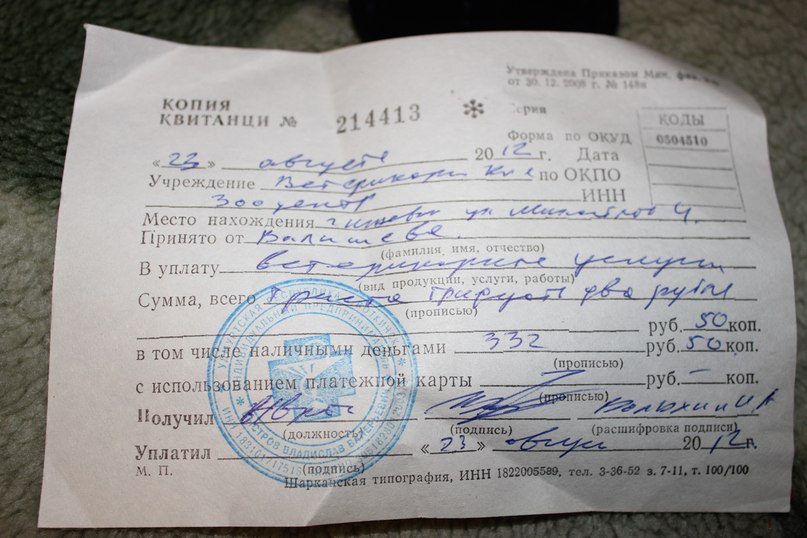 Утверждена Приказом Мин. фин.
от 30.12.2008 г. № 148н
КОПИЯ
КВИТАНЦИ № 214413 серии
КОДЫ
Форма по ОКУД 0504510
«23» августа 2012 г. Дата
Учреждение по ОКПО
Зооцентр ИНН
Место нахождения г ижевск ул
Принято от Валишева
(фамилия, имя, отчество)
В уплату ветеринарные услуги
(вид продукции, услуги, работы)
Сумма, всего Триста тридцать два рубля
(прописью)
руб. 50 коп.
в том числе наличными деньгами 332 руб. 50 коп.
(прописью)
с использованием платежной карты руб. – коп.
(прописью)
Получил
(должность) (подпись) (расшифровка подписи)
Уплатил «23» август 2012 г.
М. П. (подпись)
Шарканская типография, ИНН 1822005589, тел. 3-36-52 з. 7-11, т. 100/100